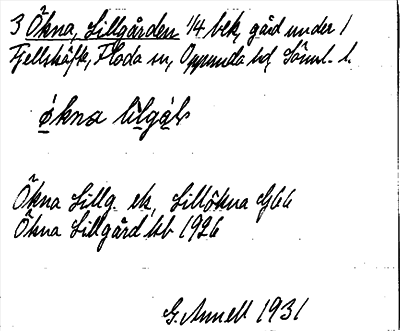 3 Ökna, Lillgården 1/4 bek, gård under 1
Fjellskäfte, Floda sn, Oppunda hd, Söml. l.
ökna lilgål
Ökna Lillg. ek, Lillökna G66
Ökna Lillgård kb 1926
G. Annell 1931